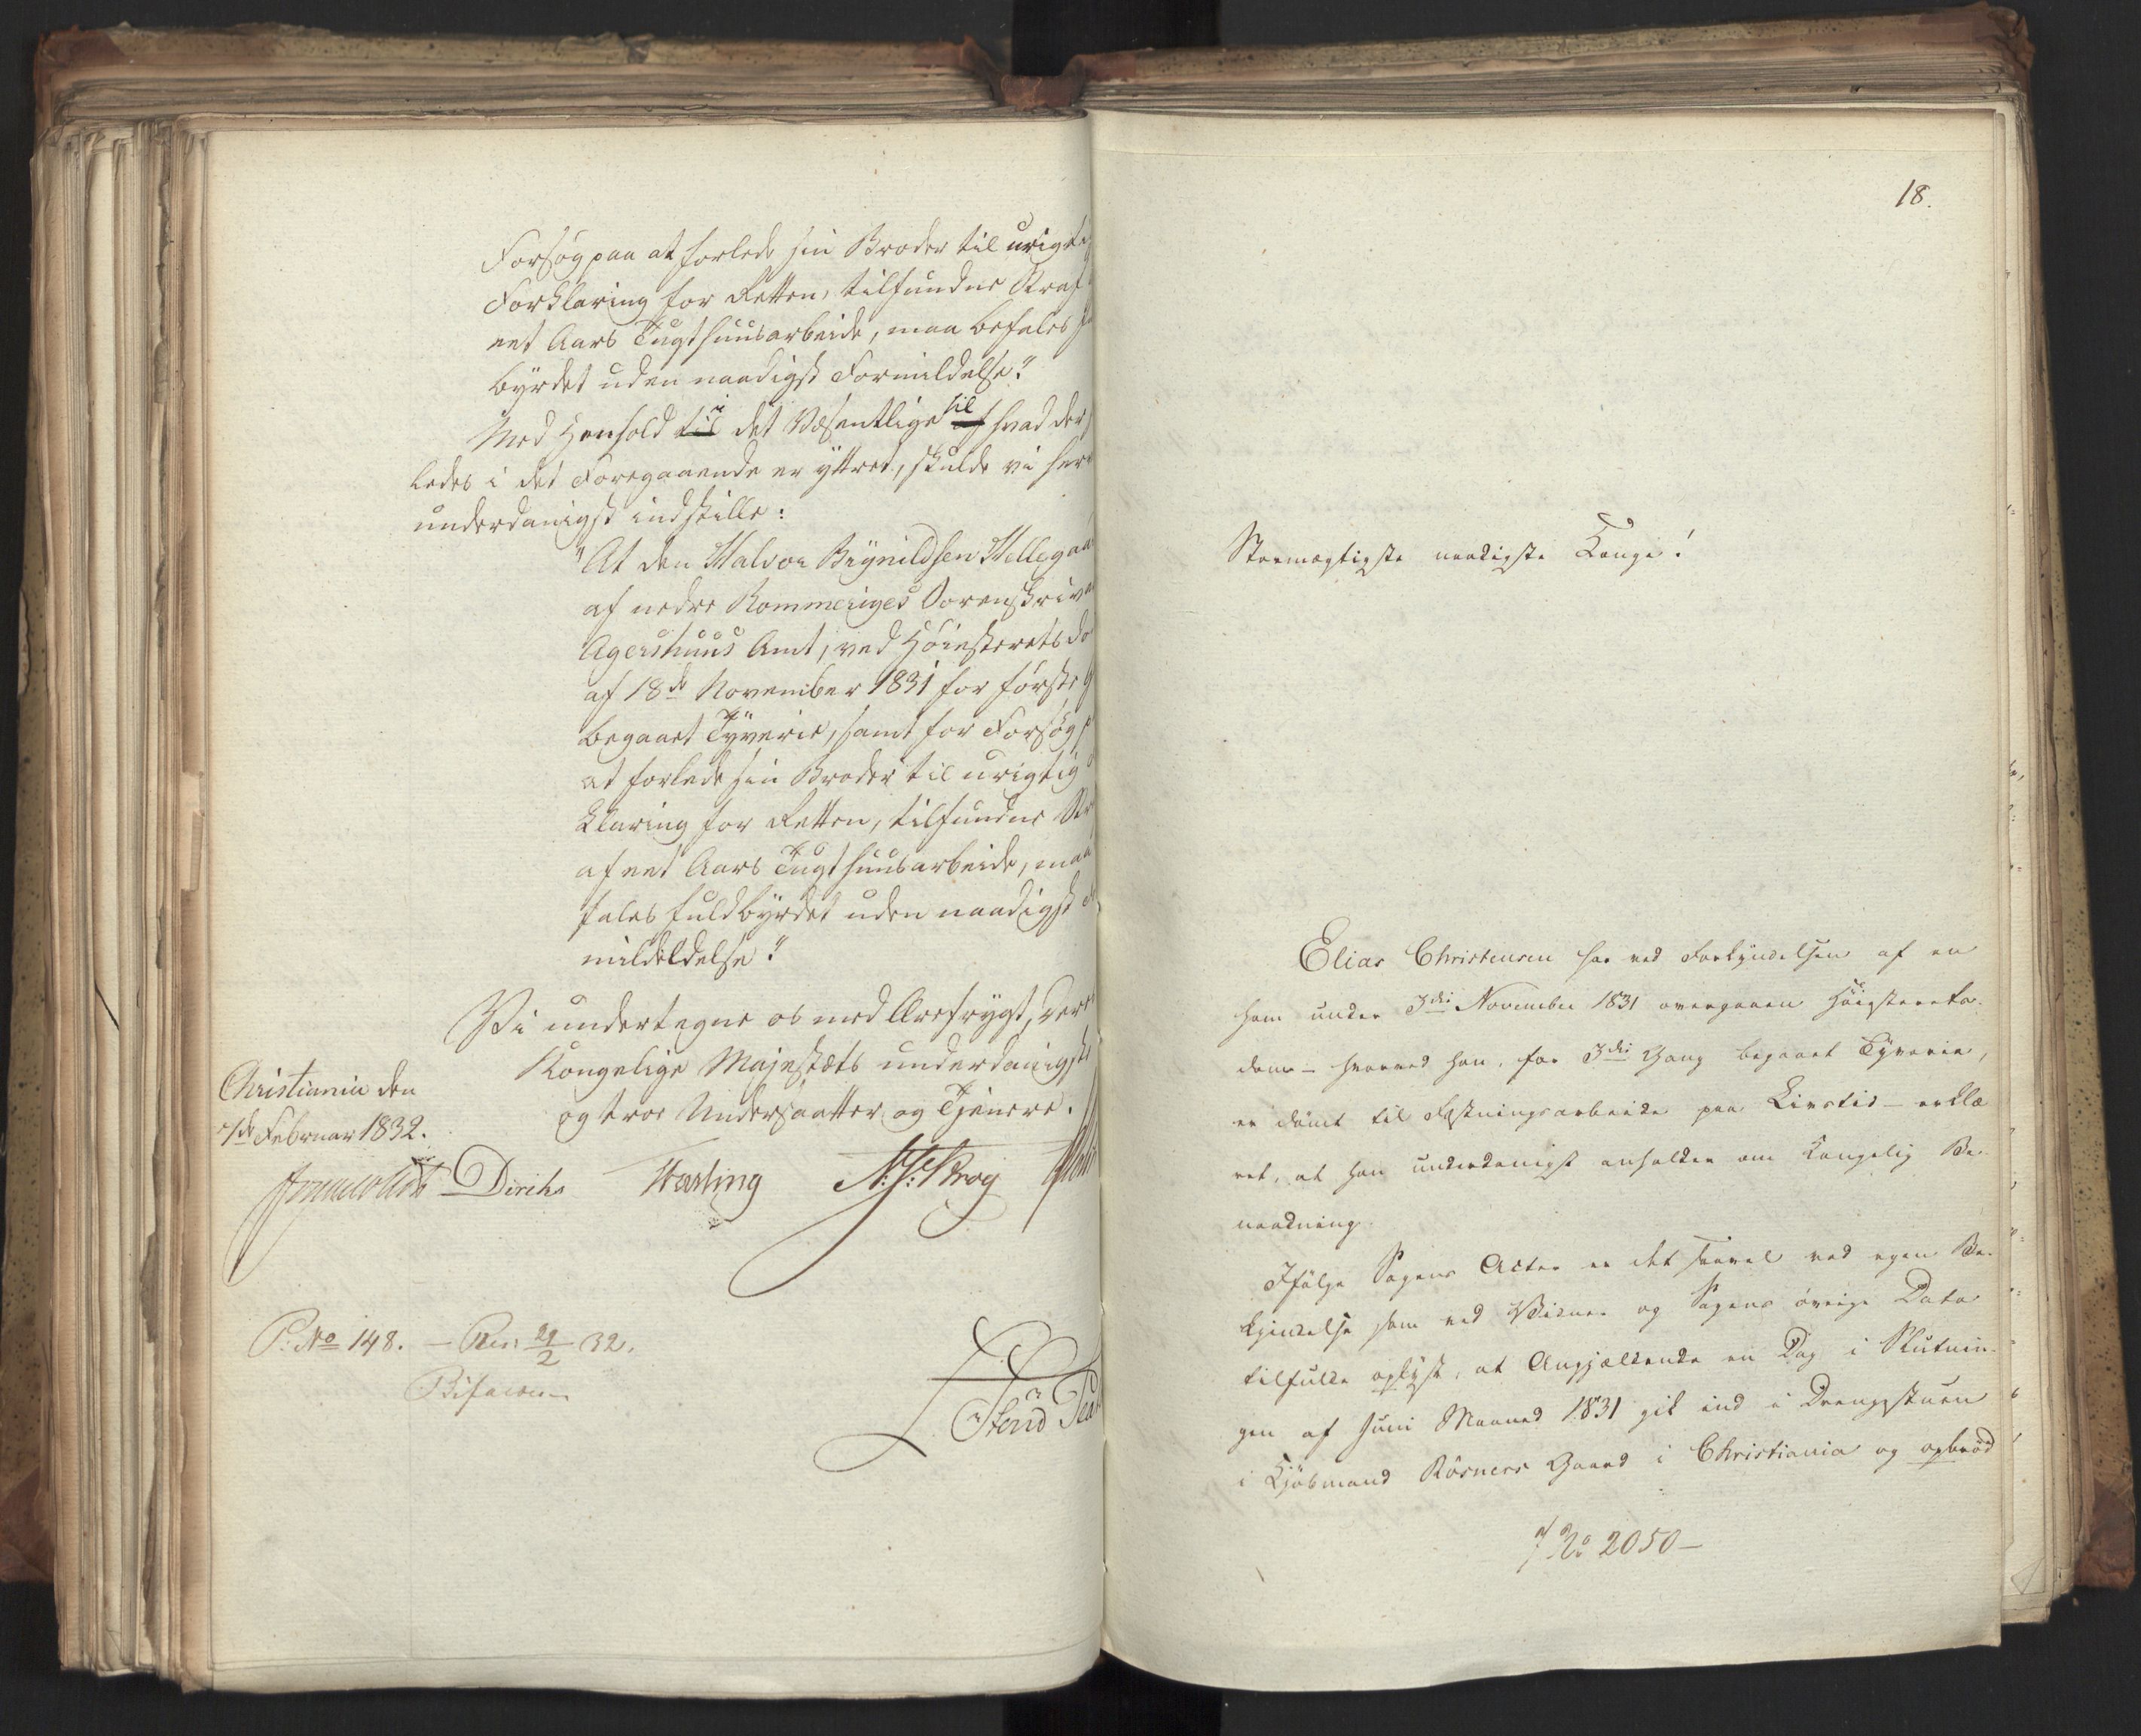 Forsøg paa at forlede sin Broder til urigti
Forklaring for Retten, tilfundne Straf
eet Aars Tugthuusarbeide, maa befales
byrdet uden naadigst Formildelse."
Med Henhold til i det Væsentlige af til hvad der
ledes i det Foregaaende er yttret, skulde vi her
underdanigst indstille:
"At den Halvor Brynildsen Hellegaa
af nedre Rommeriges Sorenskriv
Agershuus Amt, ved Høiesterets Do
af 18de November 1831 for første G
begaaet Tyverie, samt for Forsøg p
at forlede sin Broder til urigtig
klaring for Retten, tilfundne Str
af eet Aars Tugthuusarbeide, maa
fales fuldbyrdet uden naadigst
mildeldelse."
Vi undertegne os med Ærefrygt, Deres
Kongelige Majestæts underdanigste
og troe Undersaatter og Tjenere.
Christiania den
7de Februar 1832.
Diriks
N. J. Krog
P. No 148. – Res: 21/2 32.
Bifaldes
18.
Stormægtigste naadigste Konge!
Elias Christensen har ved Forkyndelsen af en
ham under 3die November 1831 overgaaen Høiesterets-
dom – hvorved han, for 3die Gang begaaet Tyverie,
er dømt til Fæstningsarbeide paa Livstid – erklæ
ret, at han underdanigst anholder om Kongelig Be-
naadning.
Ifølge Sagens Acter er det saavel ved egen Be-
kjendelse som ved Vidner og Sagens øvrige Data
tilfulde oplyst, at Angjældende en Dag i Slutnin-
gen af Juni Maaned 1831 gik ind i Drengestuen
i Kjøbmand Rösners Gaard i Christiania og opbrød
No 2050 –